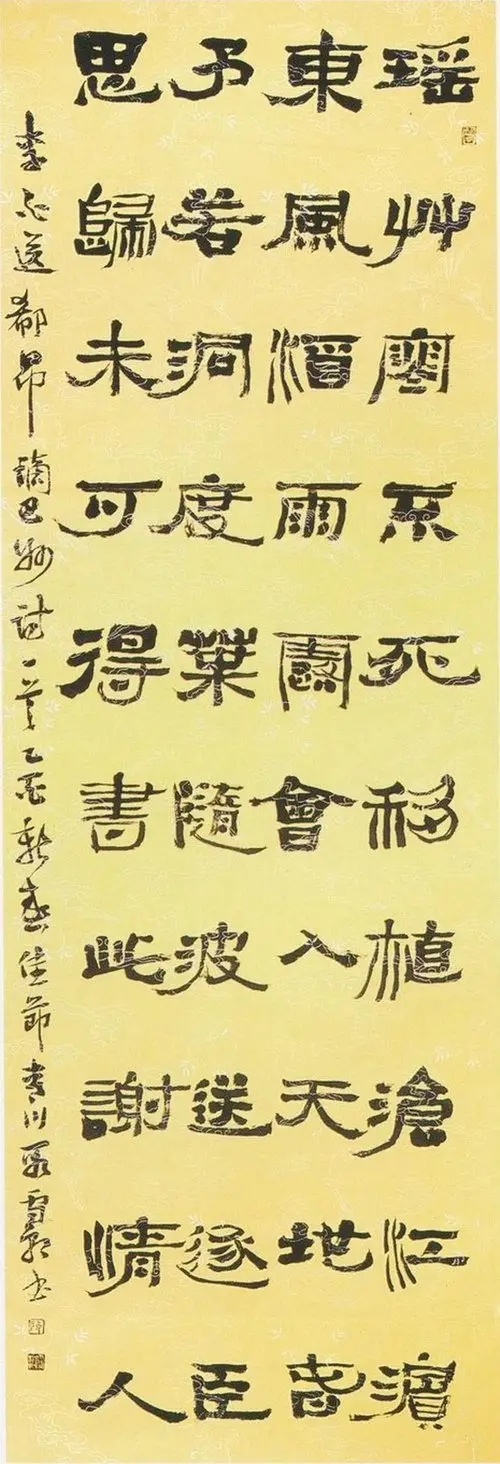 瑶艸寒不死移植滄江濱
東風洒雨露會入天地春
予若洞庭葉隨波送逐臣
思歸未可得書此謝情人
李白送郗昂謫巴州詩一首乙酉新春佳節青川雪书